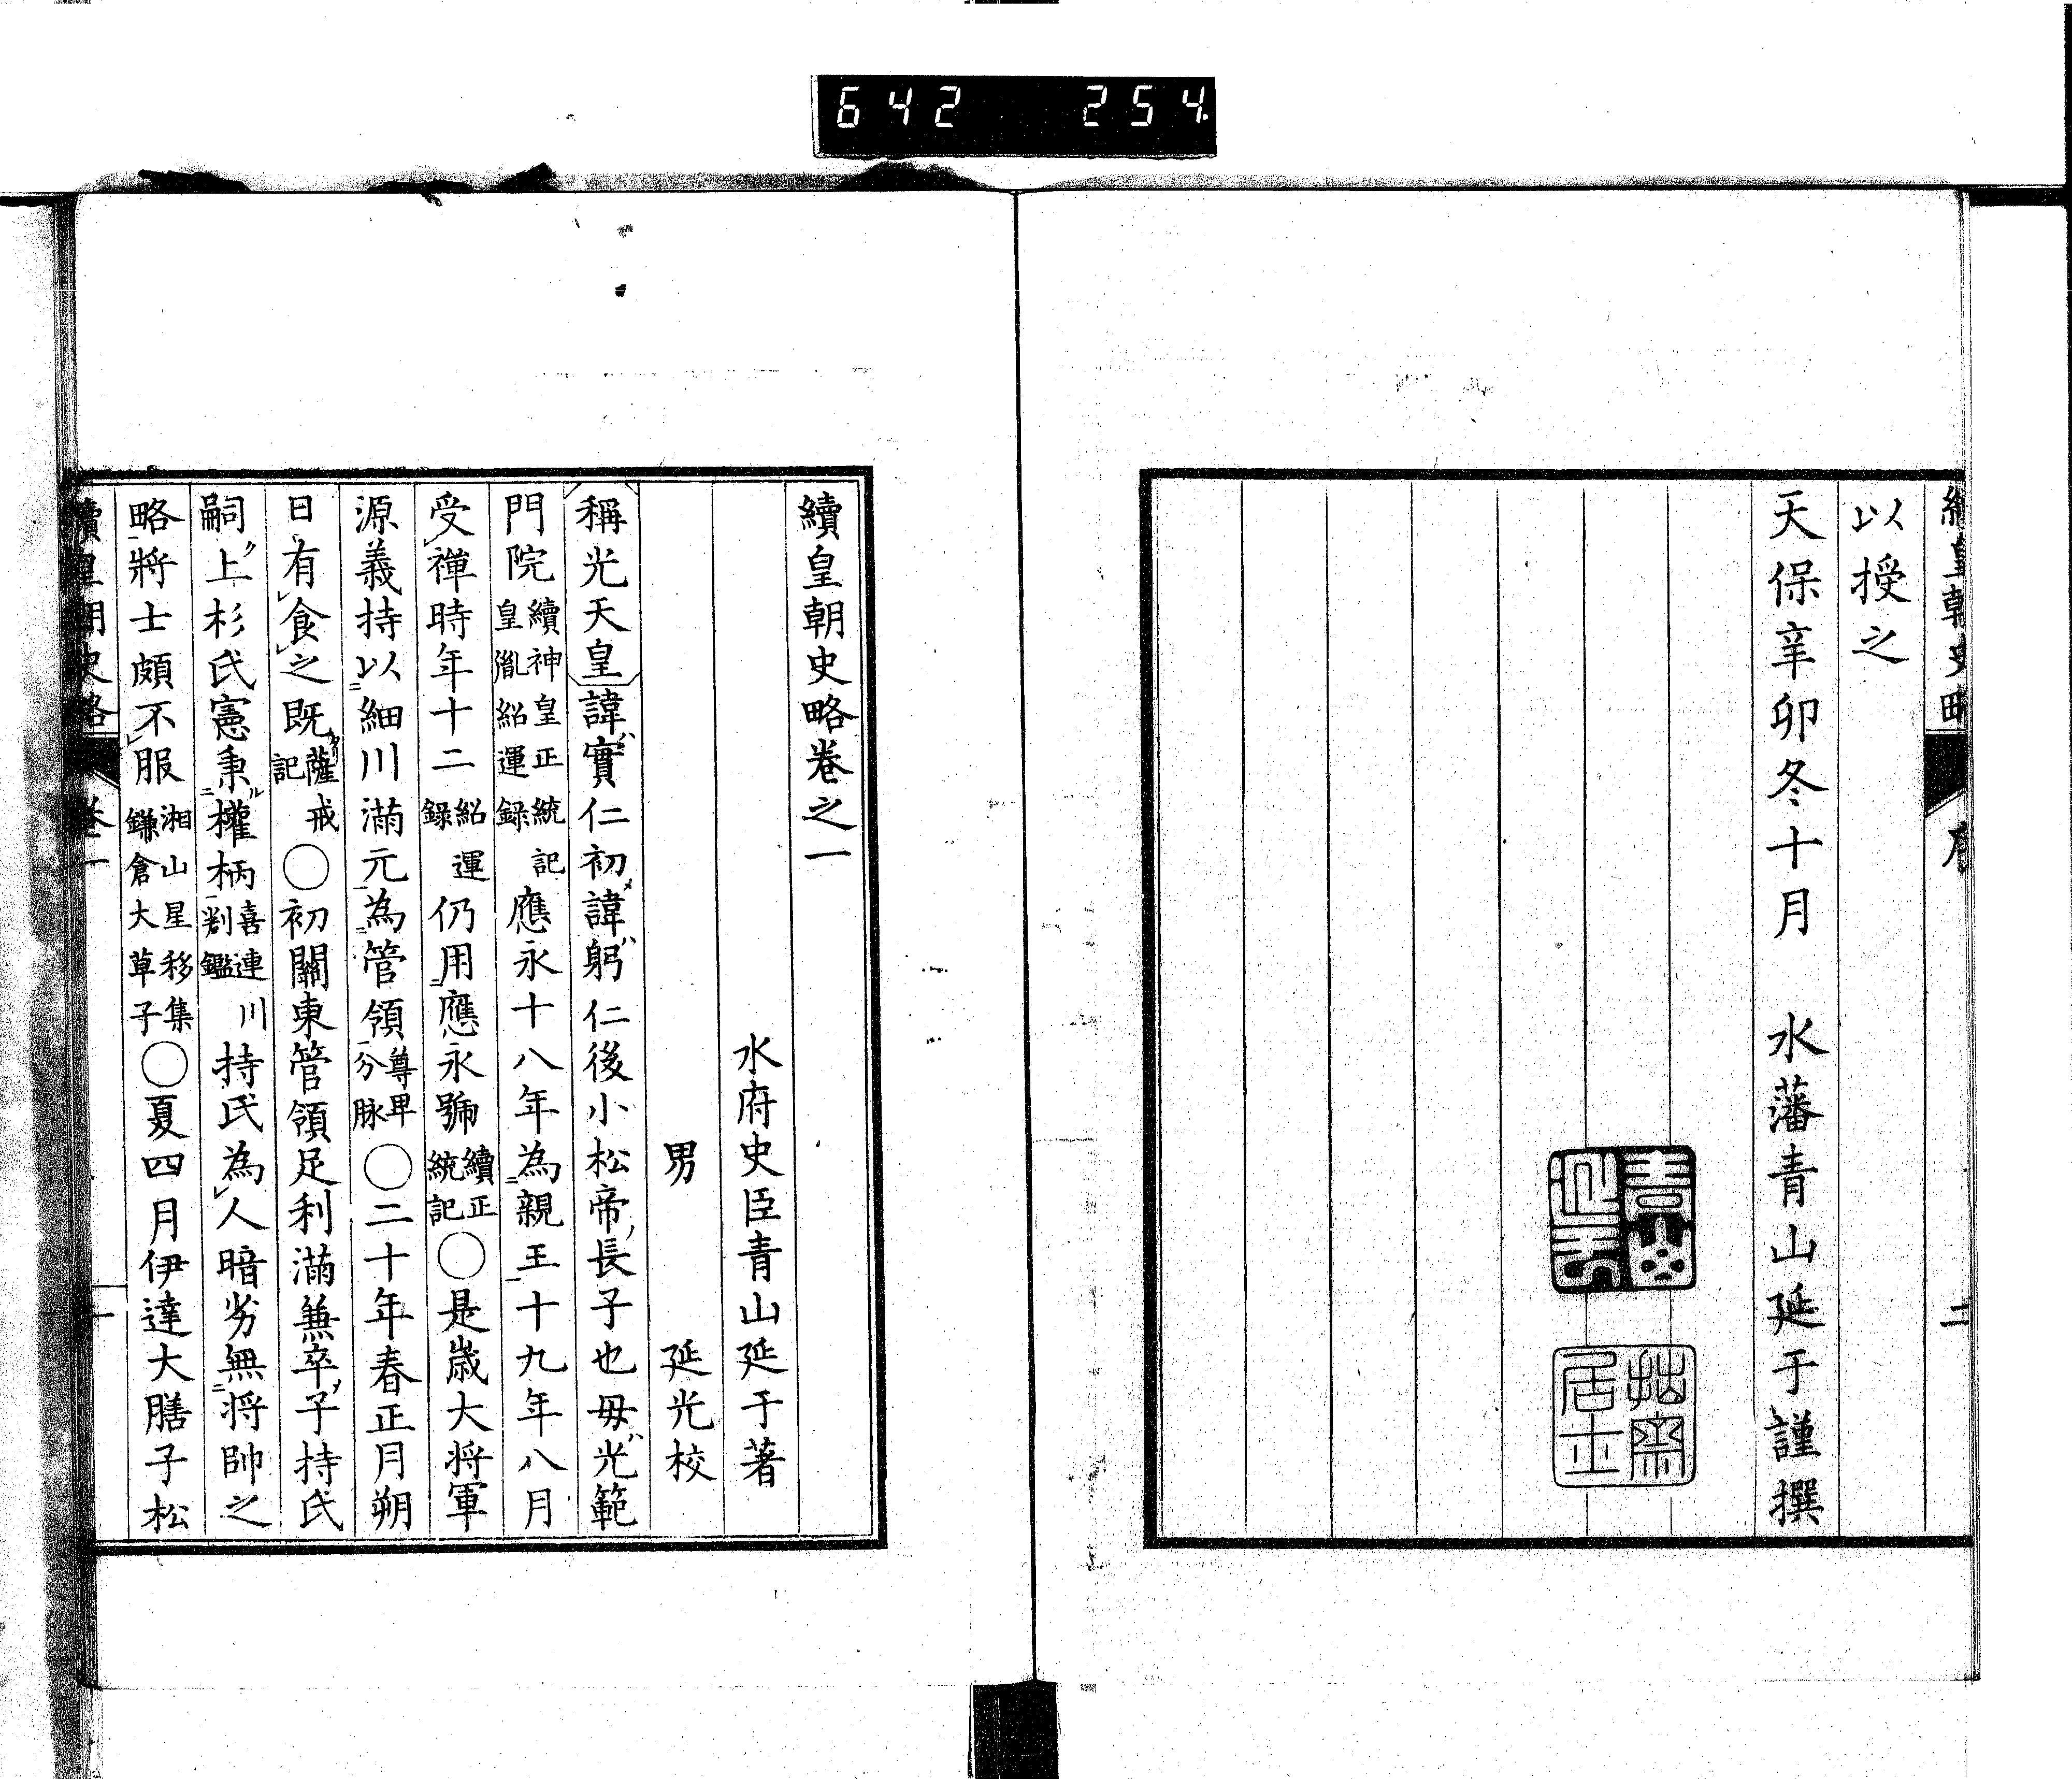 642 254
續皇朝史略 序 二
以授之
天保辛卯冬十月 水藩青山延于謹撰
青山延于
拙齋居士
續皇朝史略卷之一
水府史臣青山延于著
男 延光校
稱光天皇諱ハ實仁初メ諱ハ躬仁後小松帝ノ長子也母ハ光範
門院續神皇正統記皇胤紹運録應永十八年為親王十九年八月
受禪時年十二紹運録仍用應永號續正統記○是歲大将軍
源義持以細川滿元為管領尊卑分脉○二十年春正月朔
日有食之既薩戒記○初關東管領足利滿兼卒子持氏
嗣上杉氏憲秉權柄喜連川判鑑持氏為人暗劣無将帥之
略將士頗不服湘山星移集鎌倉大草子○夏四月伊達大膳子松
續皇朝史略 卷一 一